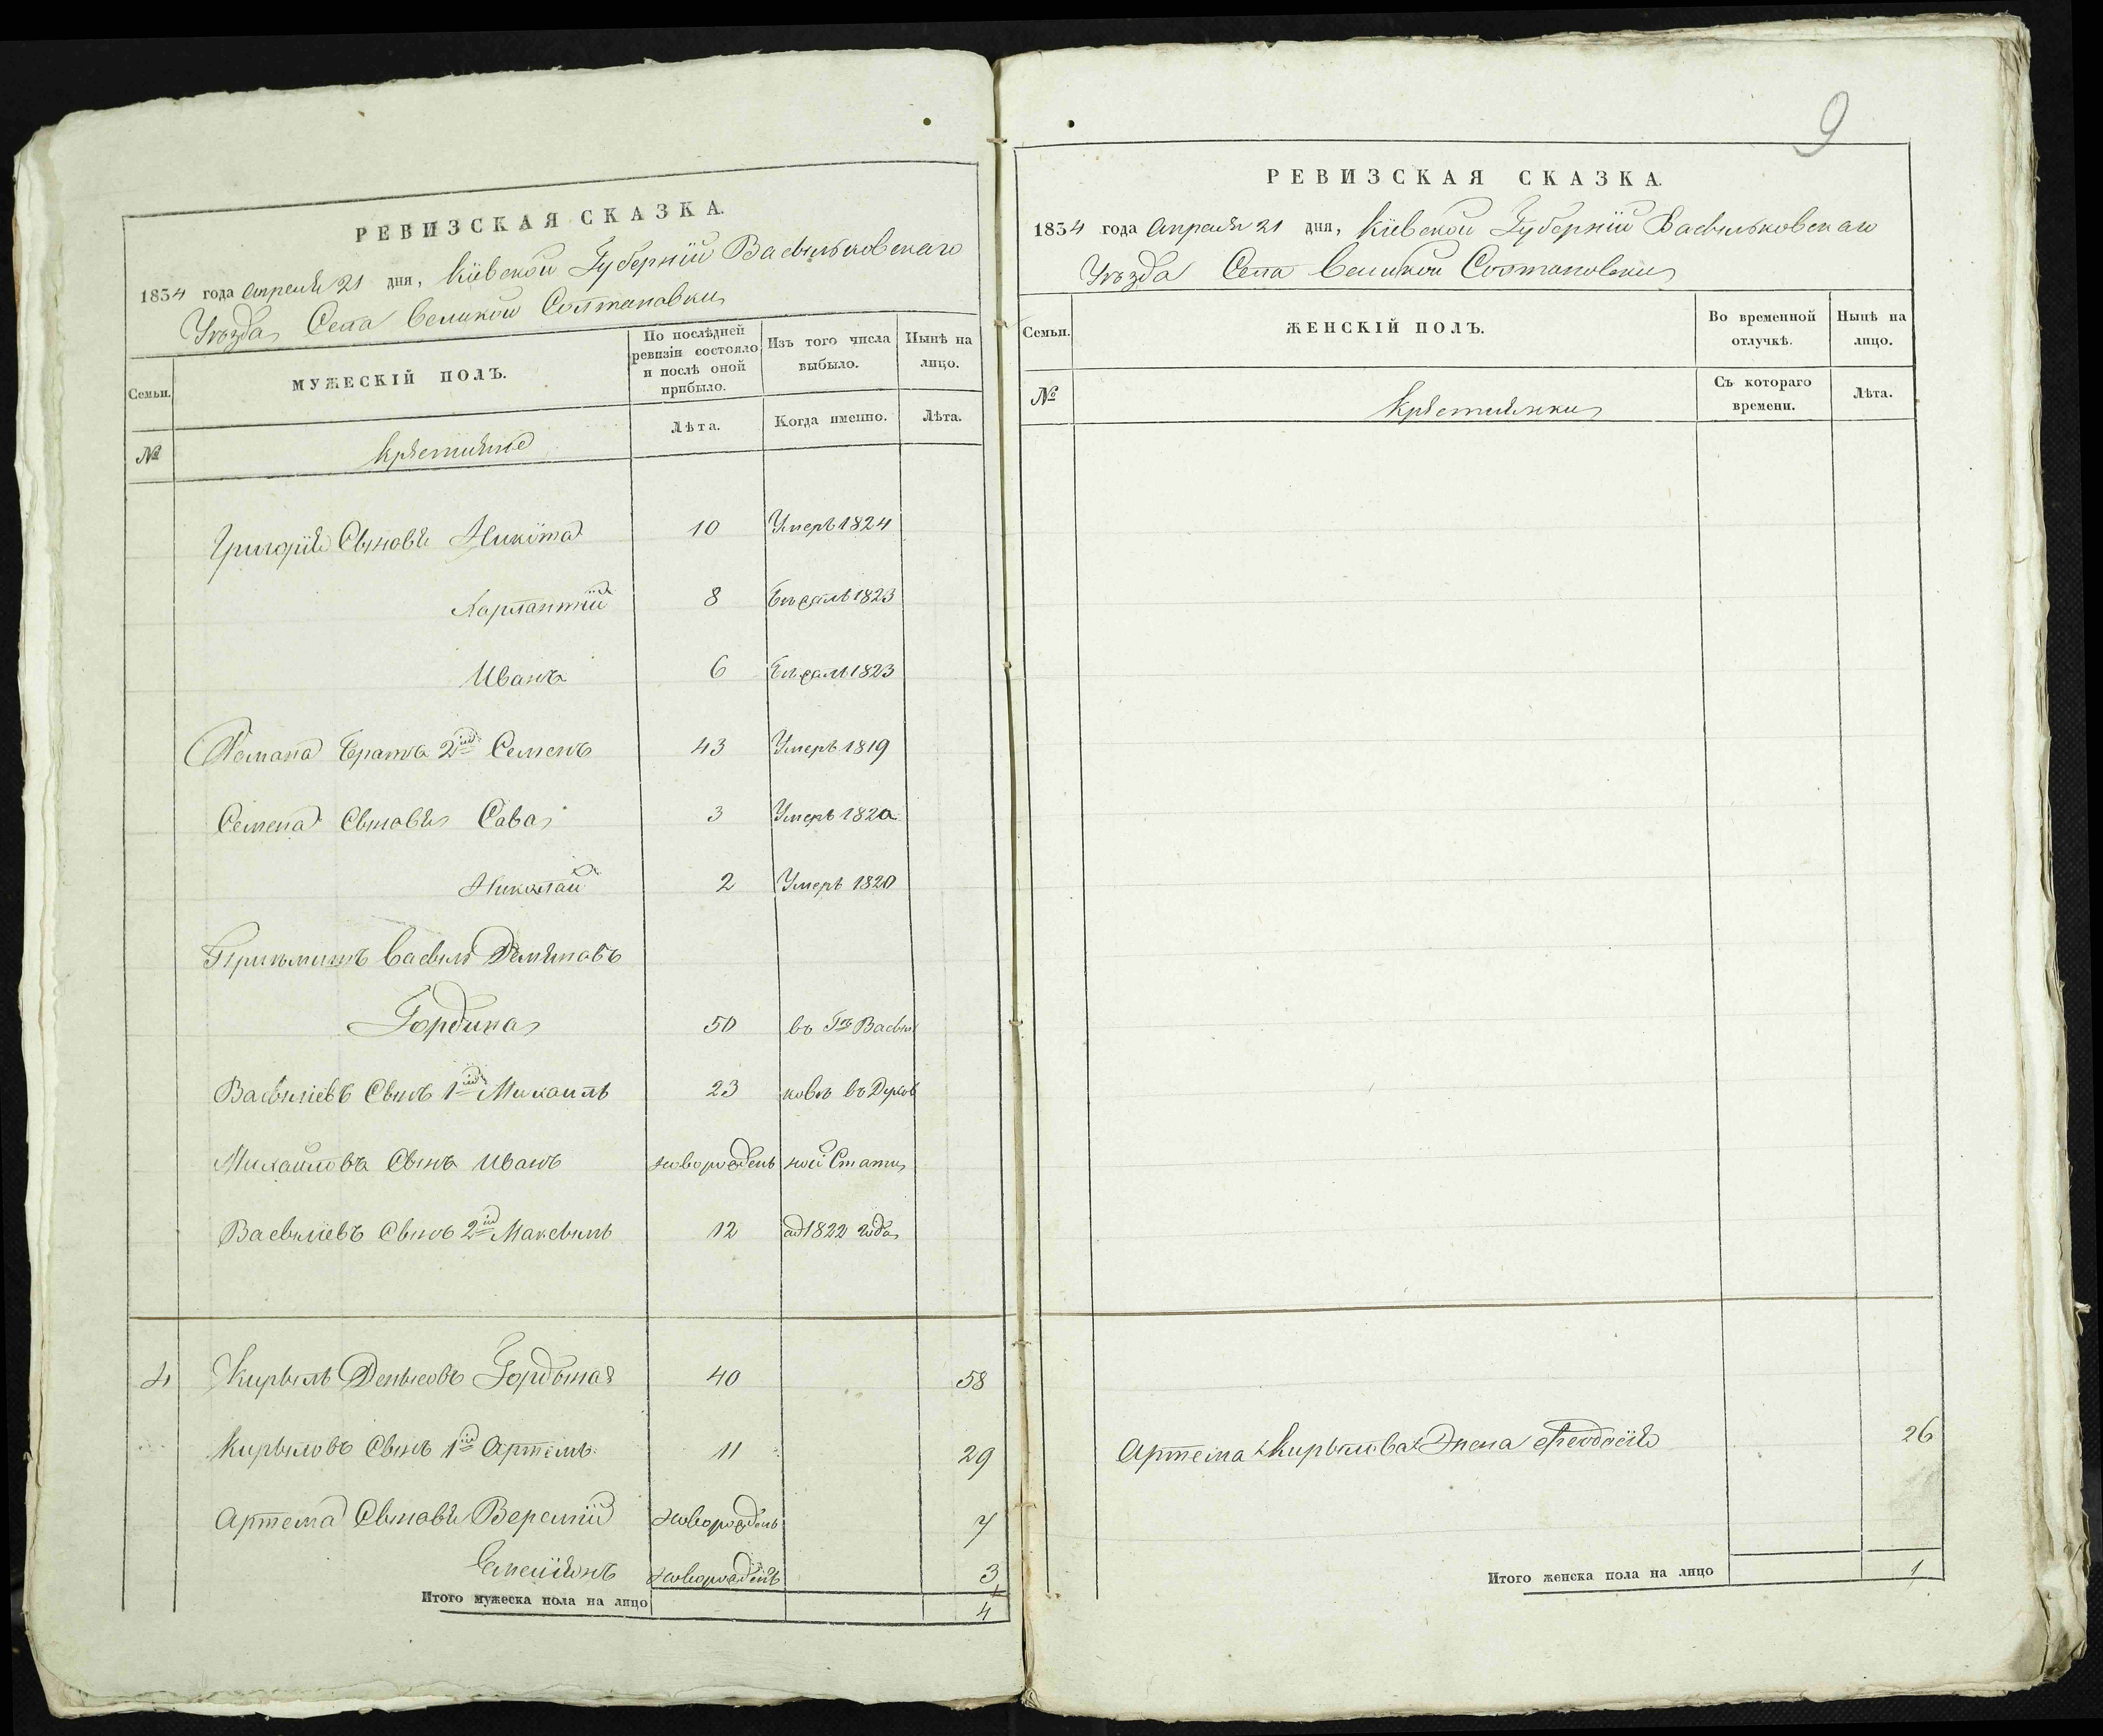 РЕВИЗСКАЯ СКАЗКА.
1834 года Апреля 21 дня, Кіевской Губерніи Васильковскаго
Уѣзда Села Великой Солтановки
Семьи.
МУЖЕСКІЙ ПОЛЪ.
По послѣдней ревизіи состояло и послѣ оной прибыло.
Изъ того числа выбыло.
Нынѣ на лицо.
№
Крѣстьяне
Лѣта.
Когда именно.
Лѣта.
Григорія Сыновья Никита 10 Умеръ 1824
Харлантій 8 1823
Иванъ 6 1823
Романа братъ 2й Семенъ 43 Умеръ 1819
Семена Сыновья Сава 3 Умеръ 1820
Николай 2 Умеръ 1820
Василь
Гордина 50 въ Гдѣ Василь
Василіевъ Сынъ 1й Михаилъ 23 ковѣ въ
Михайловъ Сынъ Иванъ новорожденъ ной Стати
Василіевъ Сынъ 2й Максымъ 12 1822 года
4 Кирылъ Денысовъ Гордына 40 58
Кирыловъ Сынъ 1й Артемъ 11 29
Артема Сыновья Веремій новорожденъ 7
Емеліянъ новорожденъ 3
Итого мужеска пола на лицо 4
9
РЕВИЗСКАЯ СКАЗКА.
1834 года Апреля 21 дня, Кіевской Губерніи Васильковскаго
Уѣзда Села Великой Солтановки
Семьи.
ЖЕНСКІЙ ПОЛЪ.
Во временной отлучкѣ.
Нынѣ на лицо.
№
Крѣстьянки
Съ котораго времени.
Лѣта.
Артема Кирылова Жена Феодосія 26
Итого женска пола на лицо 1